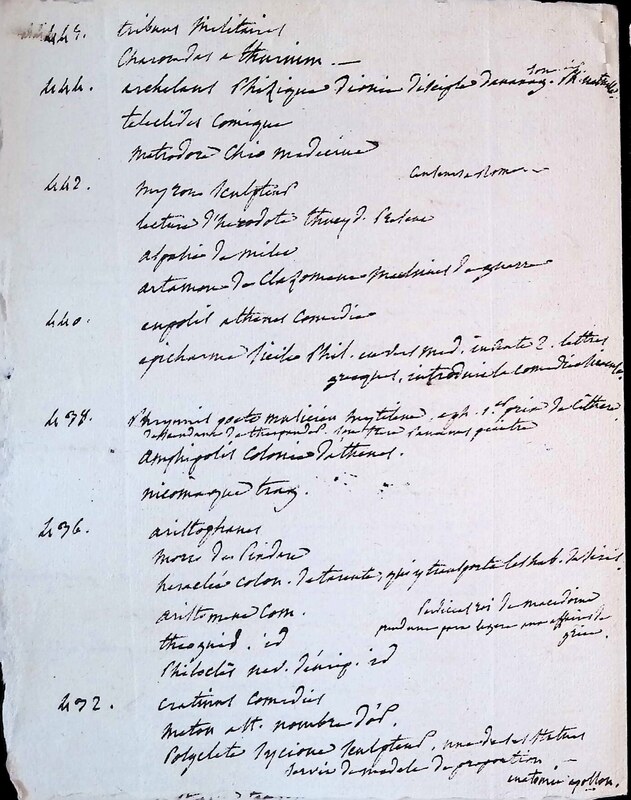 447. tribuns militaires
Charondas a thurium. —
444. archelaus Phizique dionie disciple danaxag.
teleclides Comique
metrodore Chio medecine
442. myron sculpteur Censeurs a Rome —
lecture d'herodote thucyd. pleure
de milet
artamone de Clazomene machines de guerre
440. eupolis athenes Comedie
epicharme Sicile Phil. med. invente 2. lettres
grecques. introduit la comedie
438. Phrynnis poete musicien mytilene. 1er prix de Cithare
Panænus peintre
Amphipolis Colonie d'athenes.
nicomaque trag.
436. aristophanes
mort de Pindare
heraclée colon. de tarente, qui y transporte les hab. de Siris.
aristomene Com. Perdiccas roi de macedoine
affaires de
grece.
theognid. id
Philoclès nev. d'eurip. id
432. cratinus Comedies
meton att. nombre d'or.
Polyclete Sycione sculpteur. une de ses statues
servit de modele de proportion. —
anatomie apollon.